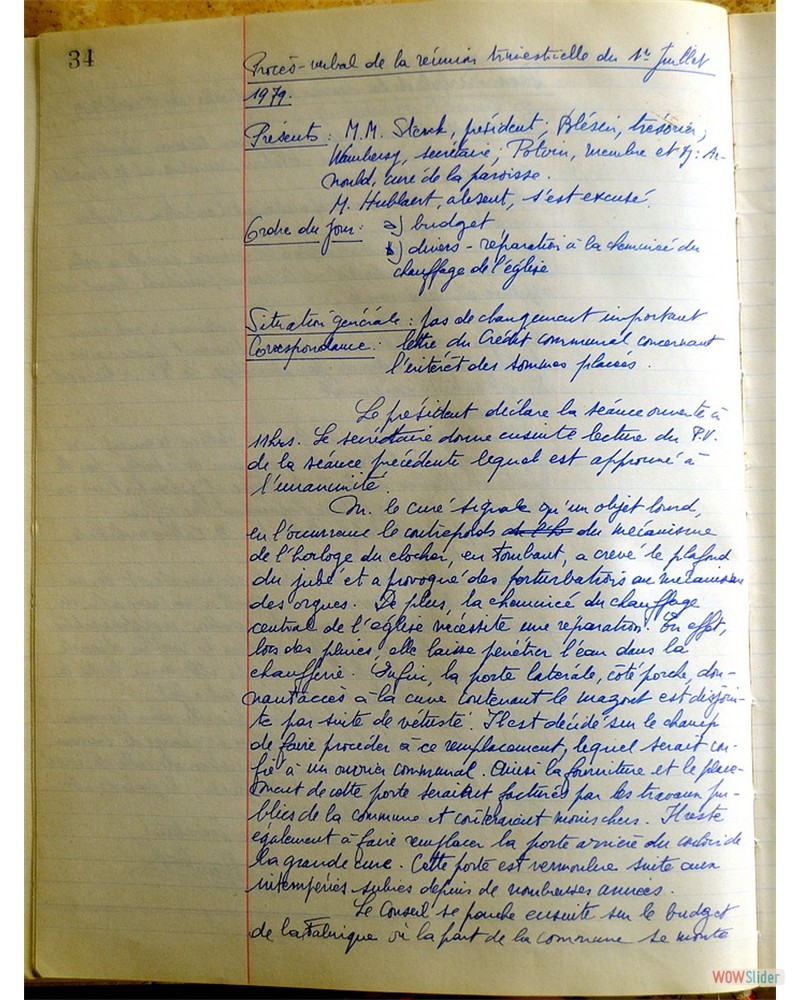 34
Procès-verbal de la réunion trimestrielle du 1er Juillet
1979.
Présents : M.M. Sterck, président; Blésin, trésorier,
secrétaire; Potvin, membre et Mr: Ar-
nould, curé de la paroisse.
M. Hublaert, absent, s'est excusé.
Ordre du jour: a) budget
b) divers - réparation à la cheminée du
chauffage de l'église
Situation générale : pas de changement important
Correspondance : lettre du Crédit communal concernant
l'intérêt des sommes placées.
Le président déclare la séance ouverte à
11 hrs. Le secrétaire donne ensuite lecture du P.V.
de la séance précédente lequel est approuvé à
l'unanimité.
M. le curé signale qu'un objet lourd,
en l'occurrence le contrepoids du mécanisme
de l'horloge du clocher, en tombant, a crevé le plafond
du jubé et a provoqué des perturbations au mécanisme
des orgues. De plus, la cheminée du chauffage
central de l'église nécessite une réparation. En effet,
lors des pluies, elle laisse pénétrer l'eau dans la
chaufferie. Enfin, la porte latérale, côté porche, don-
nant accès à la cuve contenant le mazout est disjoin-
te par suite de vétusté. Il est décidé sur le champ
de faire procéder à ce remplacement, lequel serait con-
fié à un ouvrier communal. Ainsi la fourniture et le place-
ment de cette porte seraient facturés par les travaux pu-
blics de la commune et coûteraient moins chers. Il reste
également à faire remplacer la porte arrière du couloir de
la grande cure. Cette porte est vermoulue suite aux
intempéries subies depuis de nombreuses années.
Le Conseil se penche ensuite sur le budget
de la Fabrique où la part de la commune se monte
WOWSlider